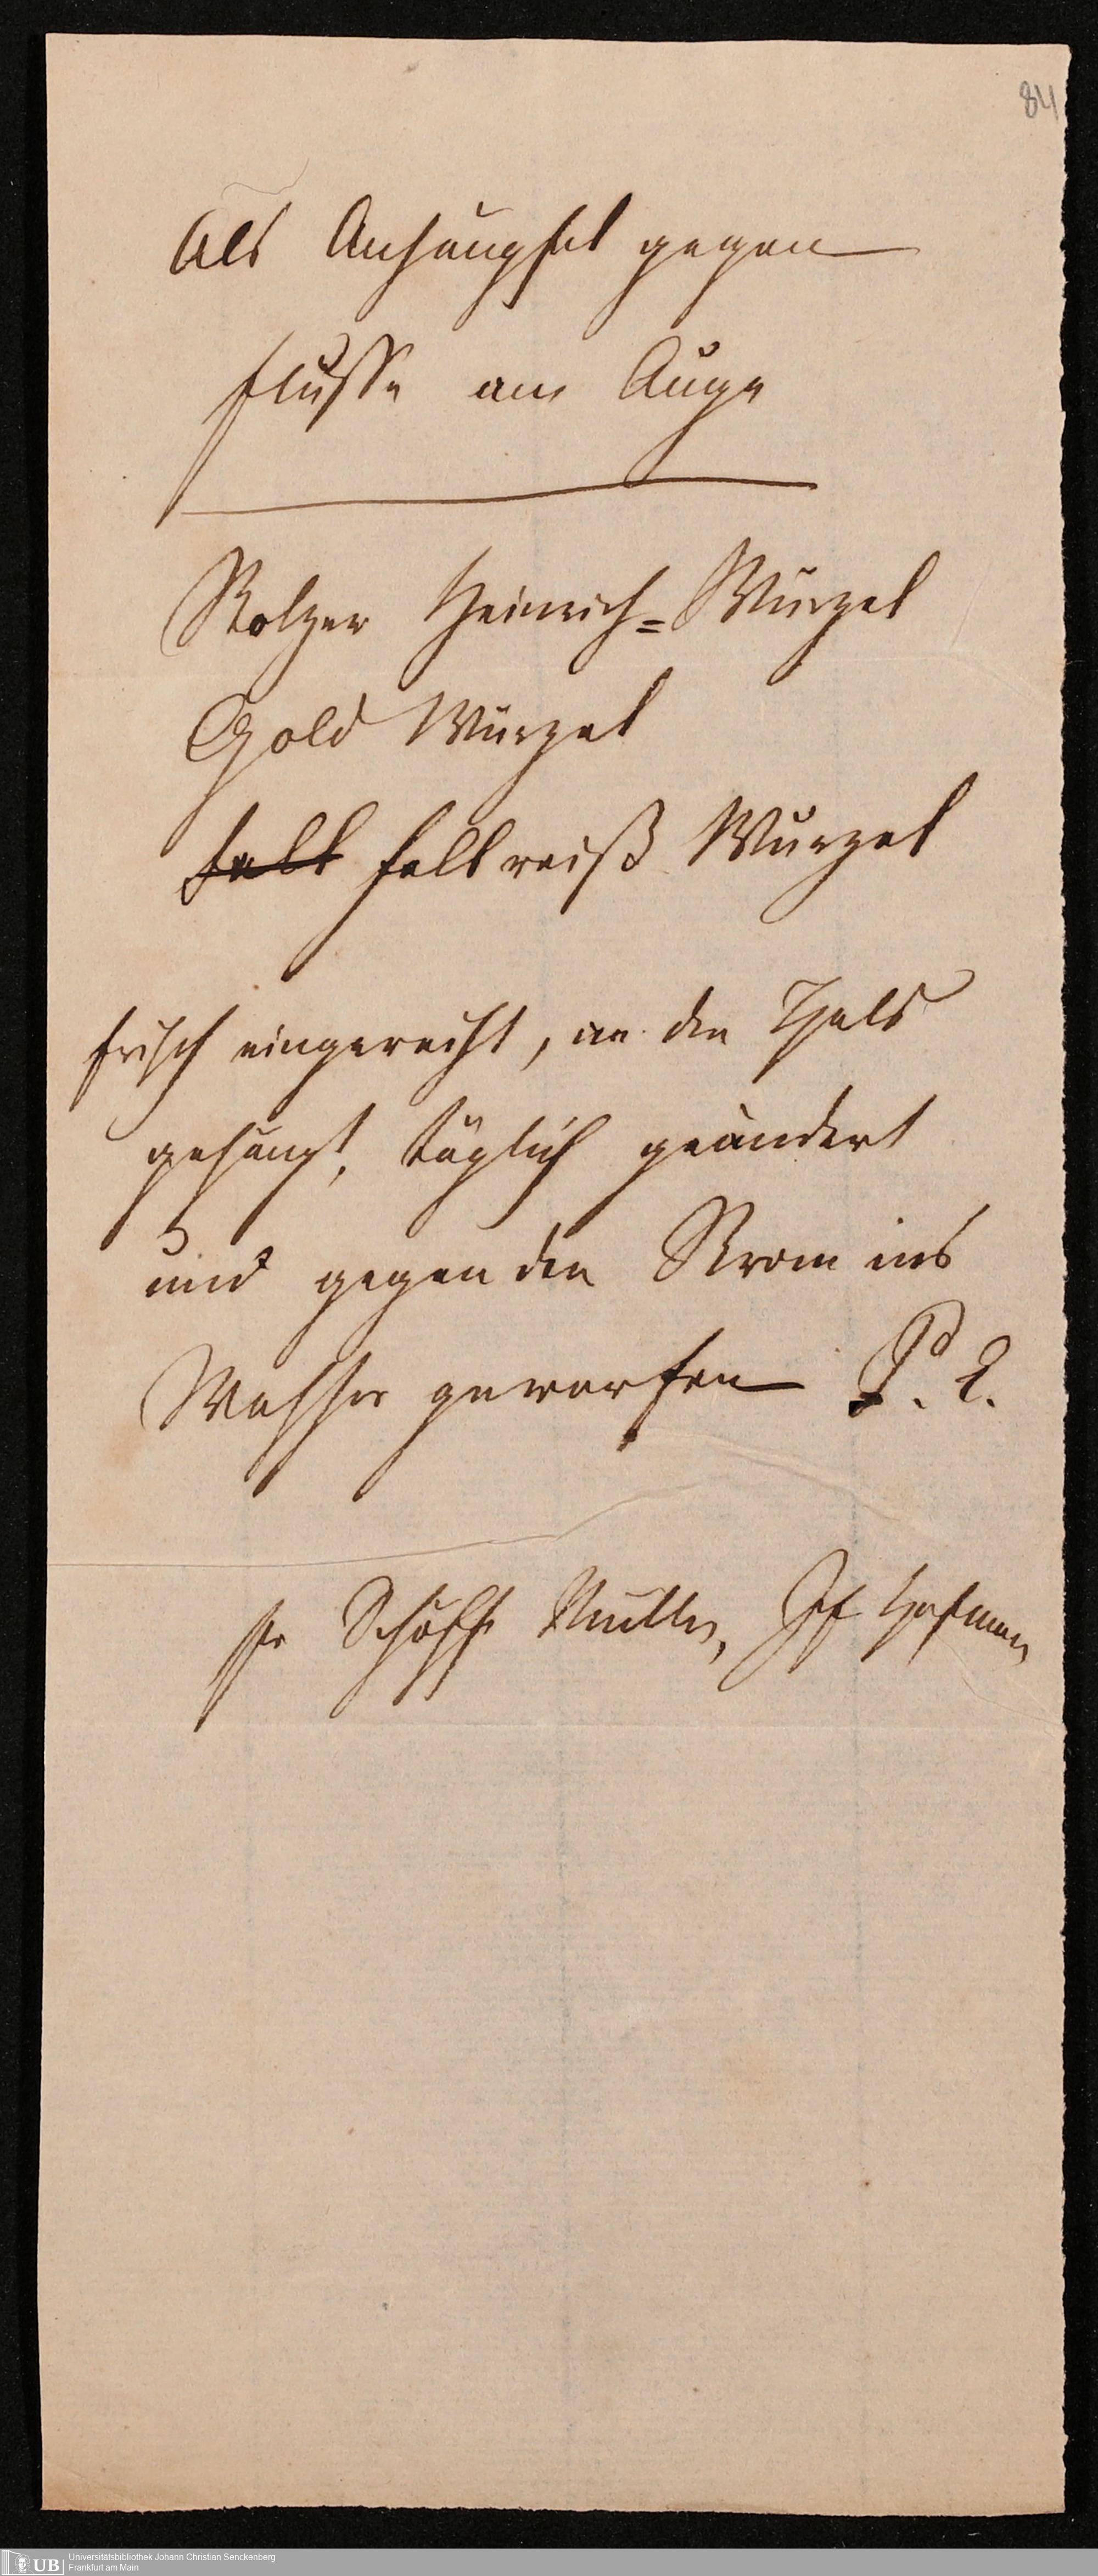 84
Als Anhängsel gegen
Flüsse am Auge
Stolzer Heinrich=Wurzel
Gold Wurzel
Fell Fellreiß Wurzel
frisch eingereiht, an den Hals
gehängt, täglich geändert
und gegen den Strom ins
Wasser geworfen P. L.
Schöffe Müller, Hofmann
Universitätsbibliothek Johann Christian Senckenberg
Frankfurt am Main
UB